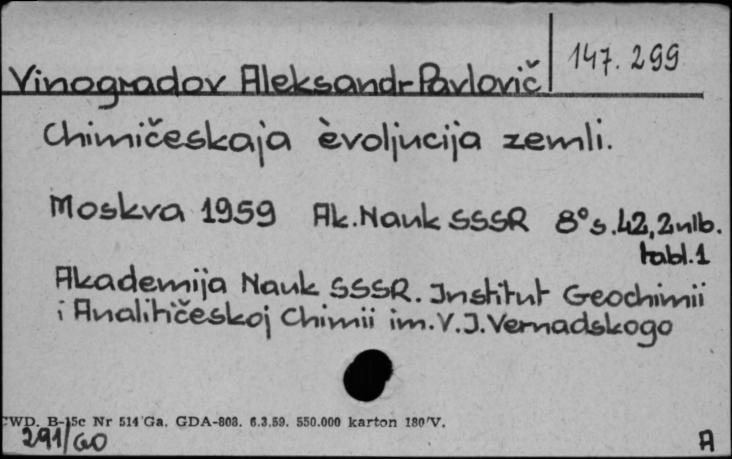 147.299
Vinogradov Aleksandr Pavlovič
Chimičeskaja èvoljucija zemli.
Moskva 1959 Ak. Nauk SSSR 8° s. 42, 2 nlb.
tabl. 1
Akademija Nauk SSSR. Institut Geochimii
i Analitičeskoj Chimii im. V. I. Vernadskogo
CWD. B-15c Nr 514 Ga. GDA-808. 6.3.59. 550.000 karton 180/V.
291/60
A